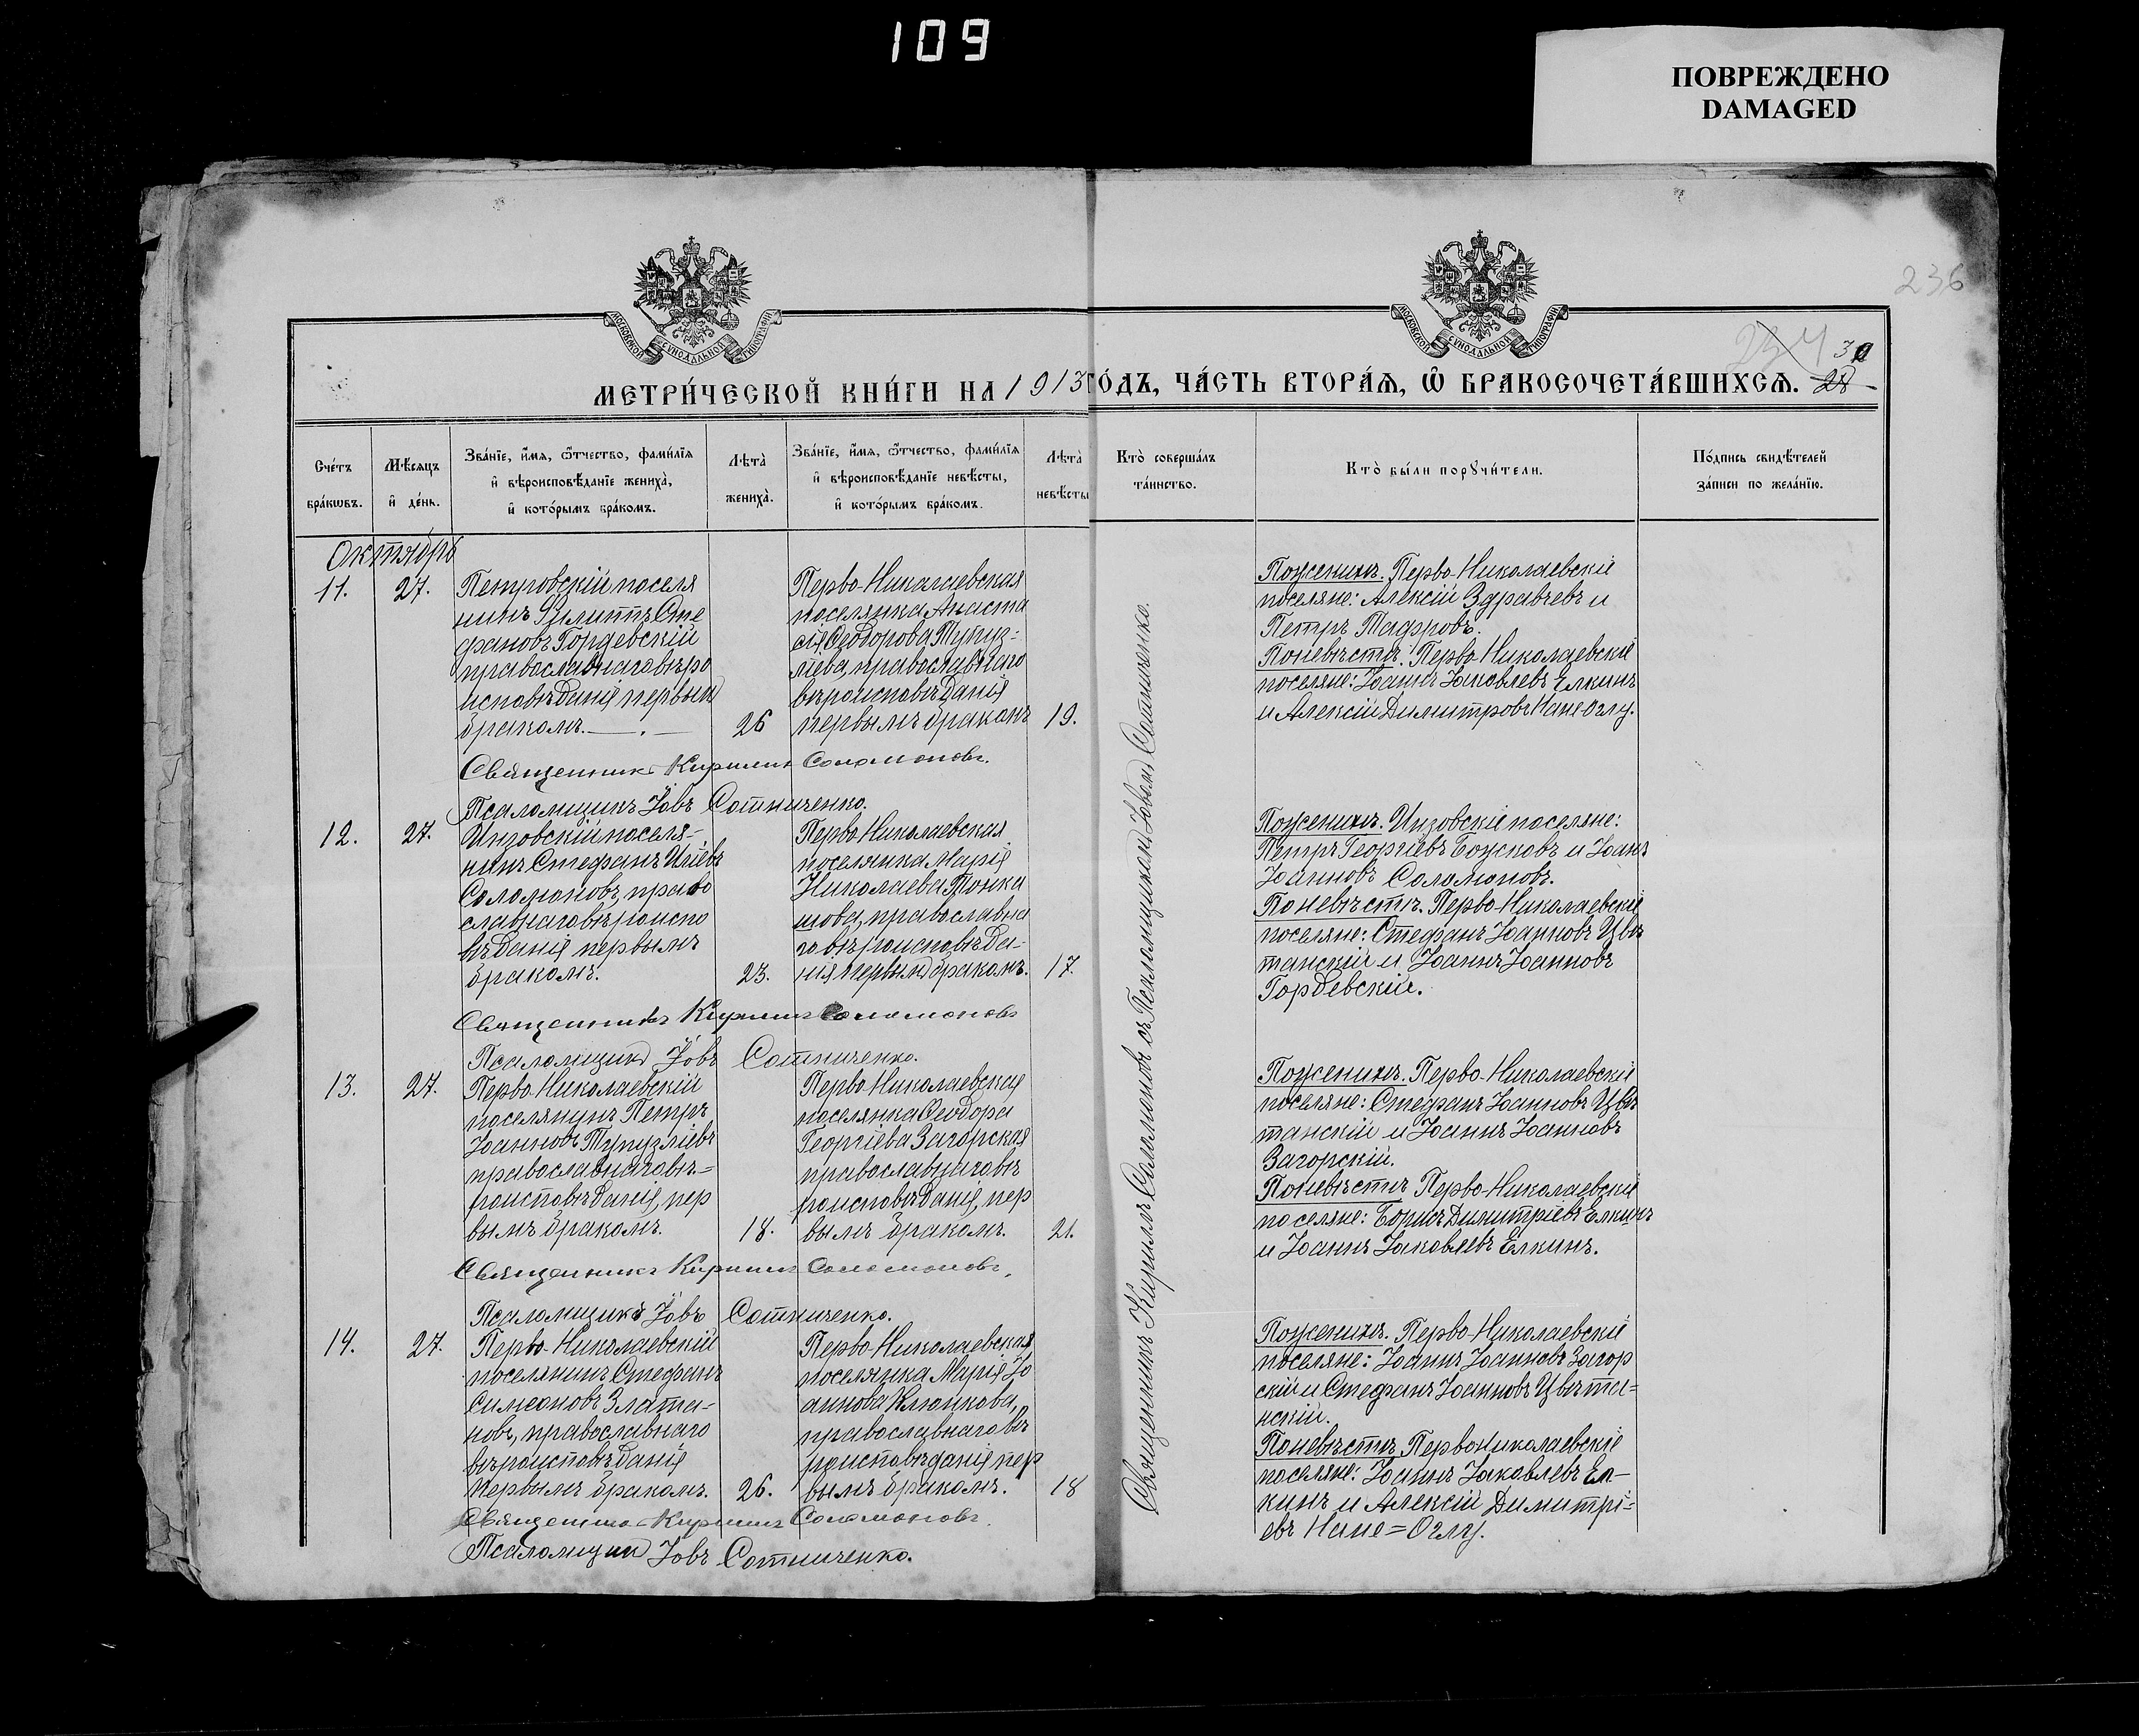 109
ПОВРЕЖДЕНО
DAMAGED
236
МОСКОВСКОЙ СѴНОДАЛЬНОЙ ТИПОГРАФІИ
МОСКОВСКОЙ СѴНОДАЛЬНОЙ ТИПОГРАФІИ
234
30
28
МЕТРИ́ЧЕСКОЙ КНИ́ГИ НА 1913 ГО́ДЪ, ЧА́СТЬ ВТОРА́Я, Ѿ БРАКОСОЧЕТА́ВШИХСЯ.
Сче́тъ бра́кѡвъ.
Мѣ́сяцъ и҆ де́нь.
Зва́нїе, и҆́мя, ѻ҆́тчество, фами́лїя
и҆ вѣроисповѣ́данїе жениха̀,
и҆ кото́рымъ бра́комъ.
Лѣ́та̀ жениха̀.
Зва́нїе, и҆́мя, ѻ҆́тчество, фами́лїя
и҆ вѣроисповѣ́данїе невѣ́сты,
и҆ кото́рымъ бра́комъ.
Лѣ́та̀ невѣ́сты
Кто̀ соверша́лъ та́инство.
Кто̀ бы́ли порꙋчи́тели.
По́дпись свидѣ́телей
за́писи по жела́нїю.
Октябрь
11.
27.
Петровскій поселя
нинъ Филиппъ Сте
фановъ Гордевскій
православнаго вѣро
исповѣданія первым
бракомъ.
26
Перво-Николаевская
поселянка Анаста
сія Ѳеодорова Тупуз=
ліева, православнаго
вѣроисповѣданія
первымъ бракомъ
19.
Поженихѣ. Перво-Николаевскіе
поселяне: Алексій Здравчевъ и
Петръ Тафровъ.
Поневѣстѣ. Перво-Николаевскіе
поселяне: Іоаннъ Іаковлевъ Елкинъ
и Алексій Димитровъ Нане Оглу.
Священникъ Кириллъ Соломоновъ.
Псаломщикъ Іовъ Сотниченко.
12.
27.
Инзовскій поселя-
нинъ Стефанъ Иліевъ
Соломоновъ, право
славнаго вѣроиспо
вѣданія первымъ
бракомъ.
23.
Перво Николаевская
поселянка Марія
Николаева Тонка
шова, православна
го вѣроисповѣда-
нія первым бракомъ.
17.
Поженихѣ. Инзовскіе поселяне:
Петръ Георгіевъ Божковъ и Іоаннъ
Іоанновъ Соломоновъ.
Поневѣстѣ. Перво-Николаевскіе
поселяне: Стефанъ Іоанновъ Цвѣ
танскій и Іоаннъ Іоанновъ
Гордевскій.
Священникъ Кириллъ Соломоновъ
Псаломщикъ Іовъ Сотниченко.
13.
27.
Перво-Николаевскій
поселянинъ Петръ
Іоанновъ Тупузліевъ
православнаго вѣ=
роисповѣданія, пер
вымъ бракомъ.
18.
Перво Николаевская
поселянка Ѳеодора
Георгіева Загорская
православнаго вѣ
роисповѣданія, пер
вымъ бракомъ.
21.
Поженихѣ. Перво-Николаевскіе
поселяне: Стефанъ Іоанновъ Цвѣ
танскій и Іоаннъ Іоанновъ
Загорскій.
Поневѣстѣ Перво-Николаевскіе
поселяне: Борисъ Димитріевъ Елкинъ
и Іоаннъ Іаковлевъ Елкинъ.
Священникъ Кириллъ Соломоновъ.
Псаломщикъ Іовъ Сотниченко.
14.
27.
Перво-Николаевскій
поселянинъ Стефанъ
Симеоновъ Злата-
новъ, православнаго
вѣроисповѣданія
первымъ бракомъ.
26.
Перво Николаевская
поселянка Марія Іо
аннова Клюнкова,
православнаго вѣ
роисповѣданія пер
вымъ бракомъ.
18
Поженихѣ. Перво-Николаевскіе
поселяне: Іоаннъ Іоанновъ Загор
скій и Стефанъ Іоанновъ Цвѣта=
нскій.
Поневѣстѣ Первониколаевскіе
поселяне: Іоаннъ Іаковлевъ Ел-
кинъ и Алексій Димитрі=
евъ Нане=Оглу.
Священникъ Кириллъ Соломоновъ.
Псаломщикъ Іовъ Сотниченко.
Священникъ Кириллъ Соломоновъ съ Псаломщикомъ Іовомъ Сотниченко.